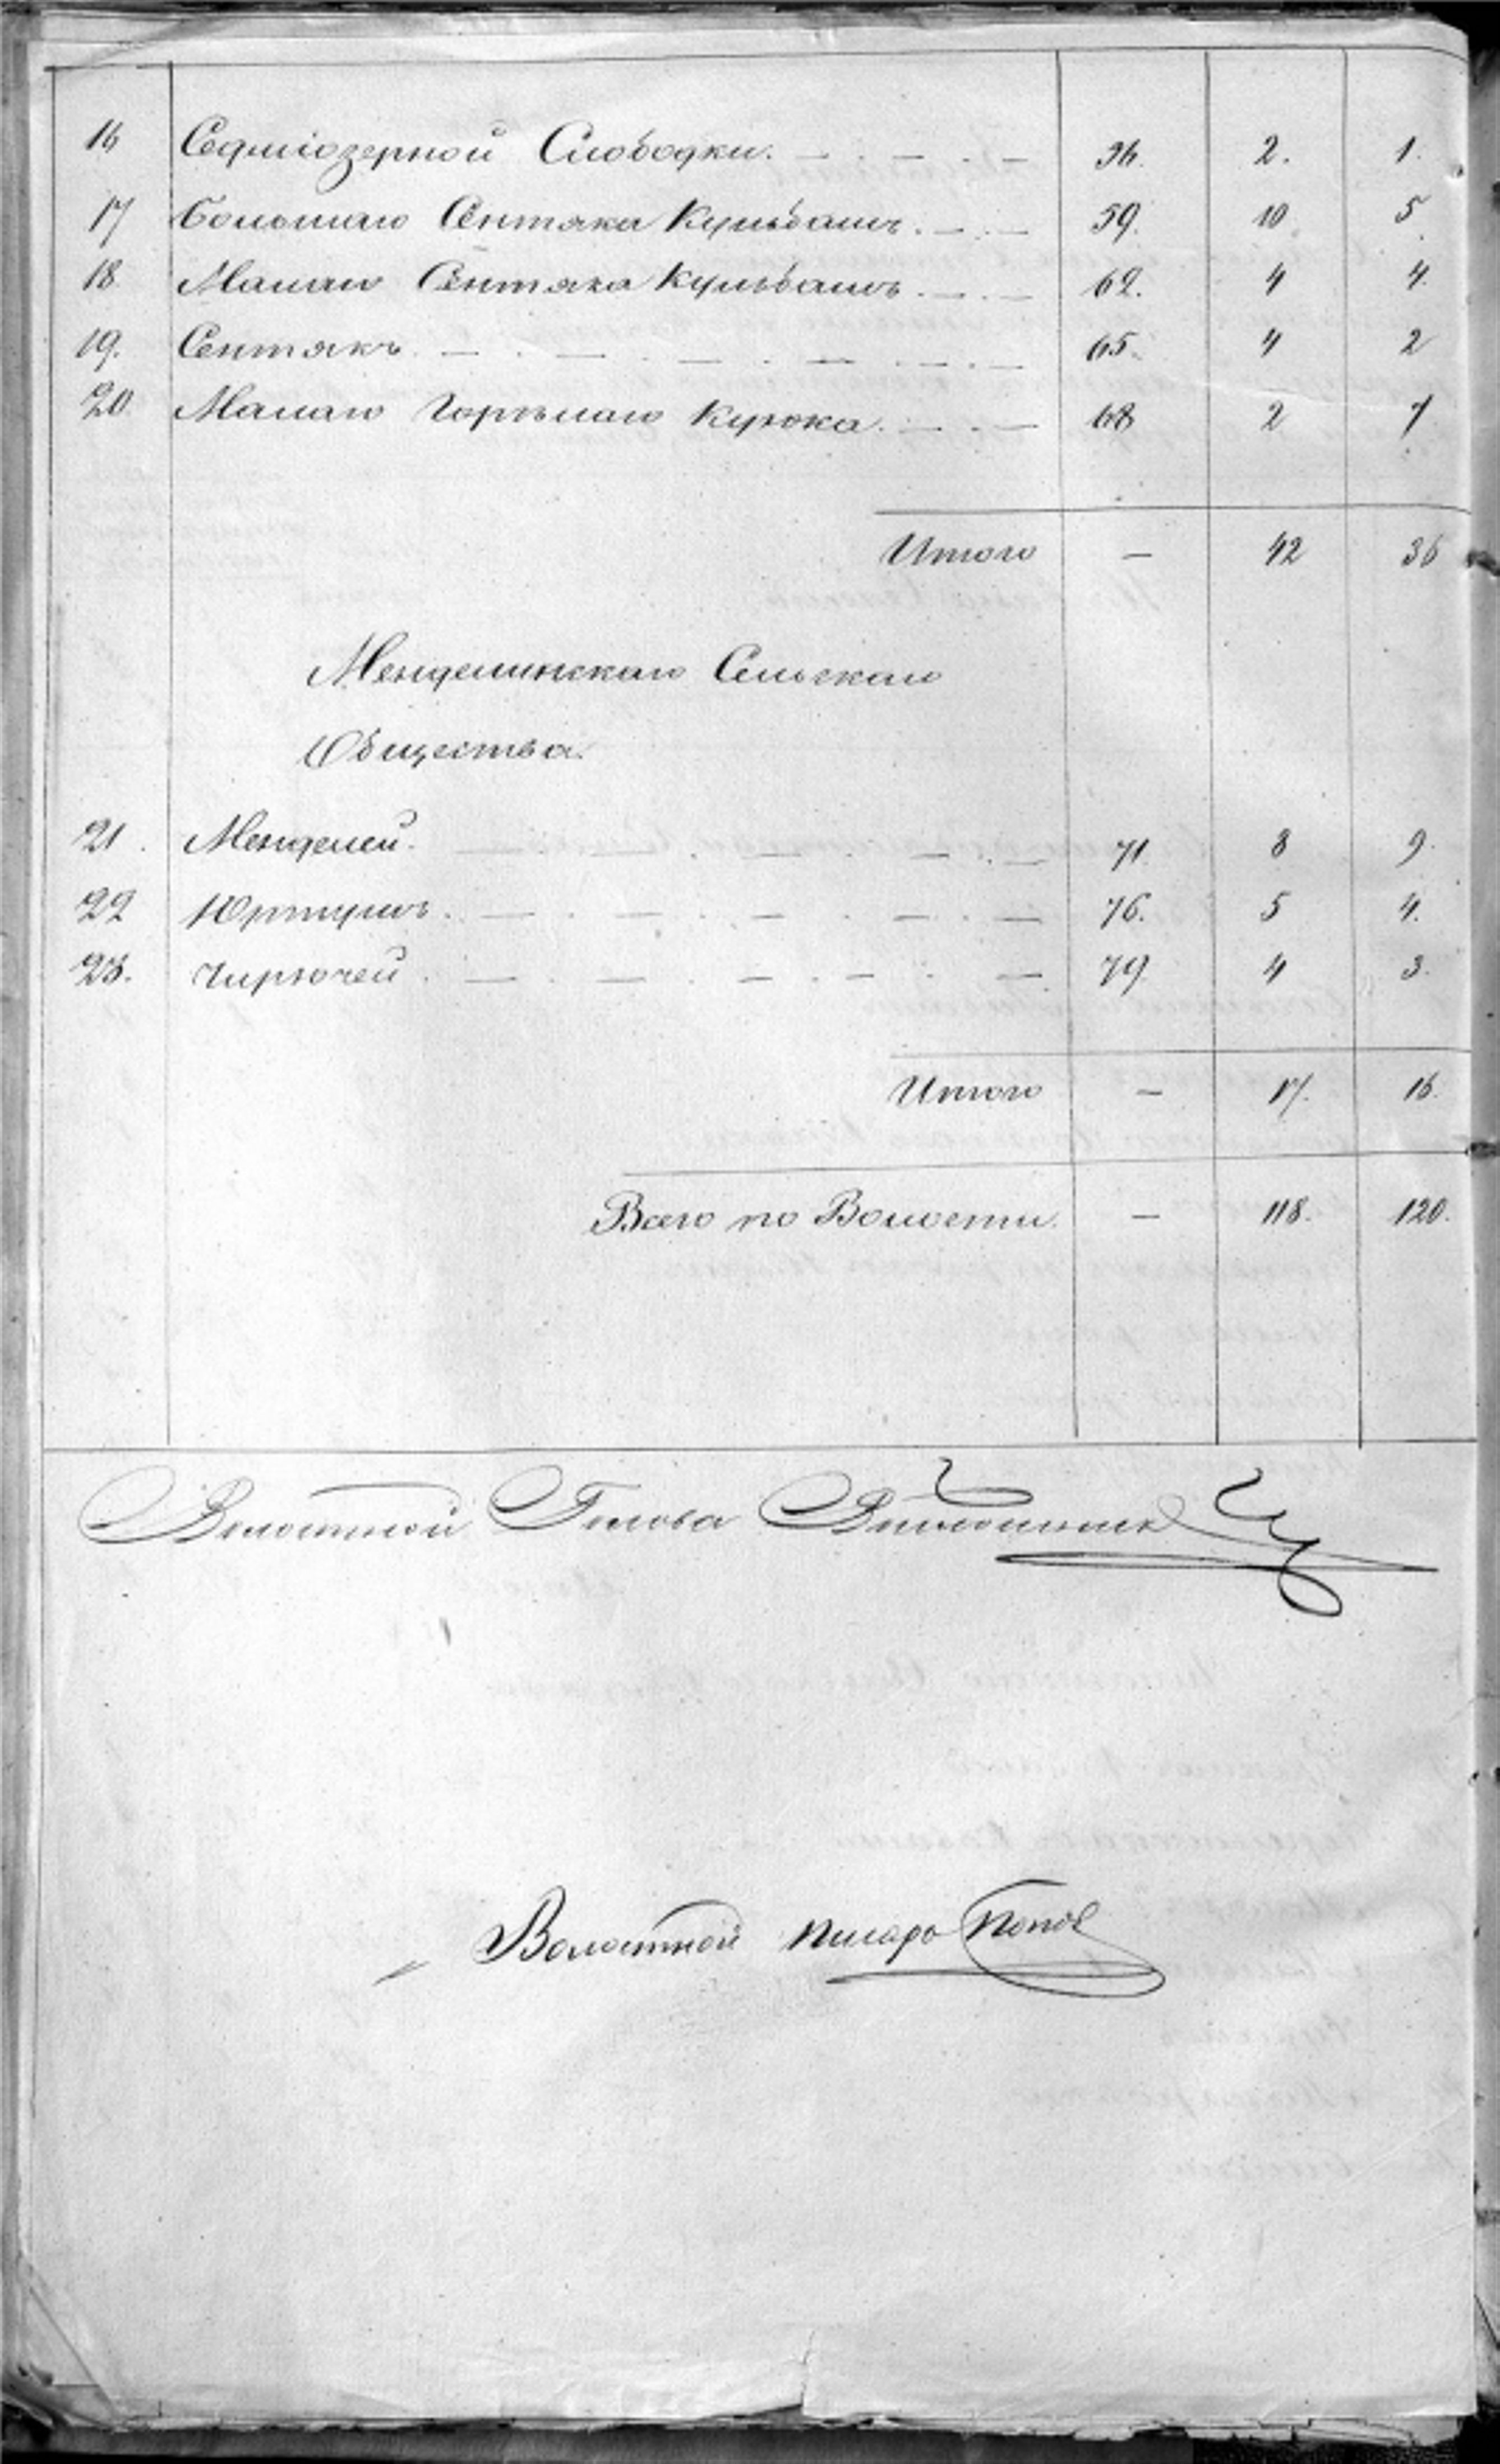 16 Седміозерной Слободки. 36. 2. 1.
17 Большаго Сентяка Кульбашъ. 59. 10 5
18 Малаго Сентяка Кульбашъ. 62. 4 4.
19. Сентякъ. 65. 4 2
20 Малаго Горѣлаго Курюка. 68 2 7
Итого — 42 36
Менделинскаго Сельскаго
Общества.
21. Менделей. 71. 8 9.
22 Юртушъ. 76. 5 4.
23. Чирючей. 79 4 3.
Итого — 17. 16.
Всего по Волости. — 118. 120.
Волостной Голова
Волостной писарь Попов